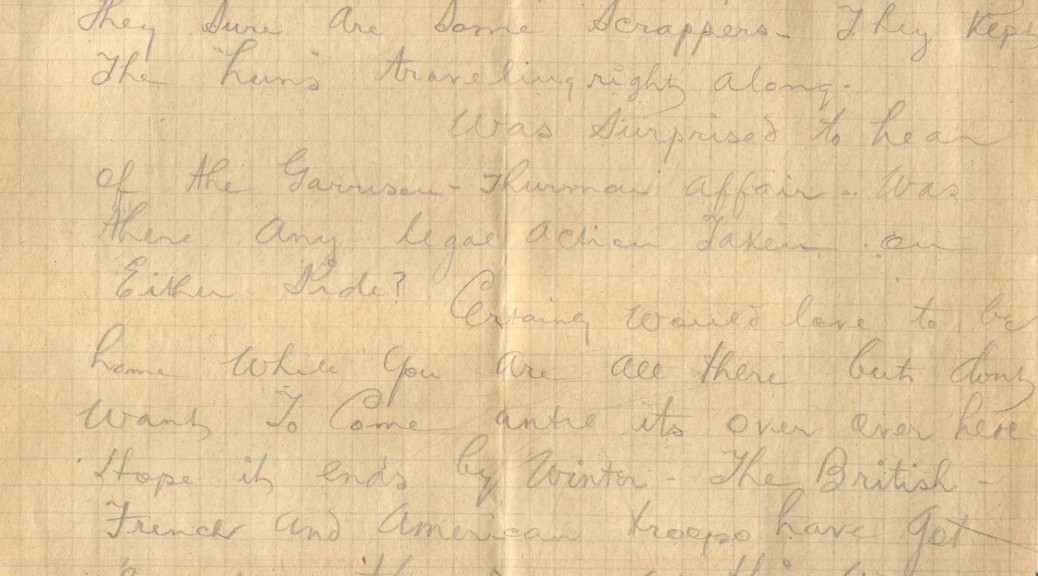 They Sure Are Some Scrappers - They Kept
The "huns traveling right along.
Was Surprised to hear
of the Garrison - Thurman affair - Was
there Any legal action Taken on
Either Side?
Certainly Would love to be
home While You Are All there but dont
Want To Come untill its over over here
Hope it ends by Winter - The British -
French and American troops have got